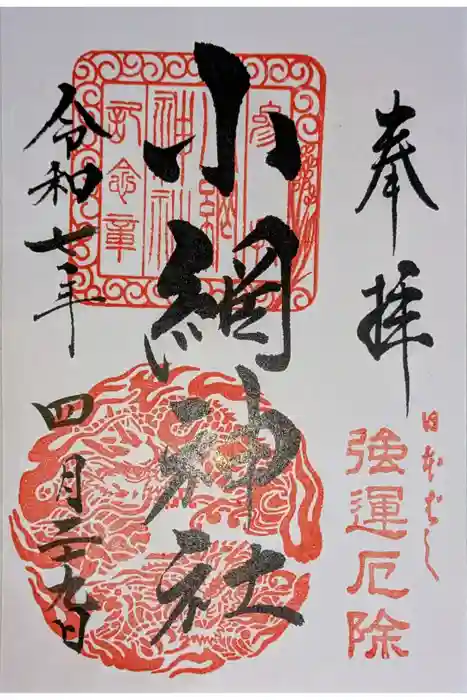 奉拝
日本ばし
強運厄除
小網神社
令和七年
四月二十九日